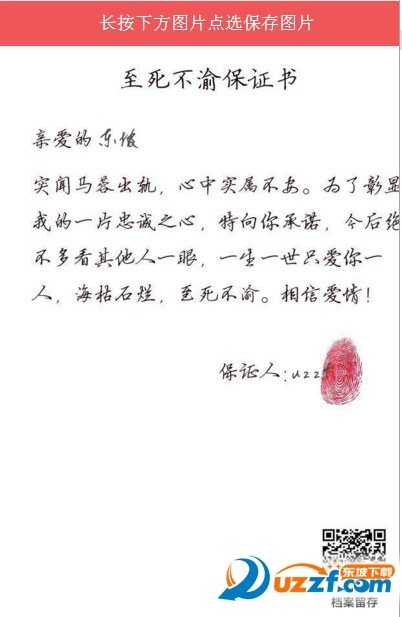 长按下方图片点选保存图片
至死不渝保证书
亲爱的东坡
突闻马蓉出轨，心中实属不安。为了彰显
我的一片忠诚之心，特向你承诺，今后绝
不多看其他人一眼，一生一世只爱你一
人，海枯石烂，至死不渝。相信爱情！
保证人：uzzf
东坡下载
uzzf.com
档案留存